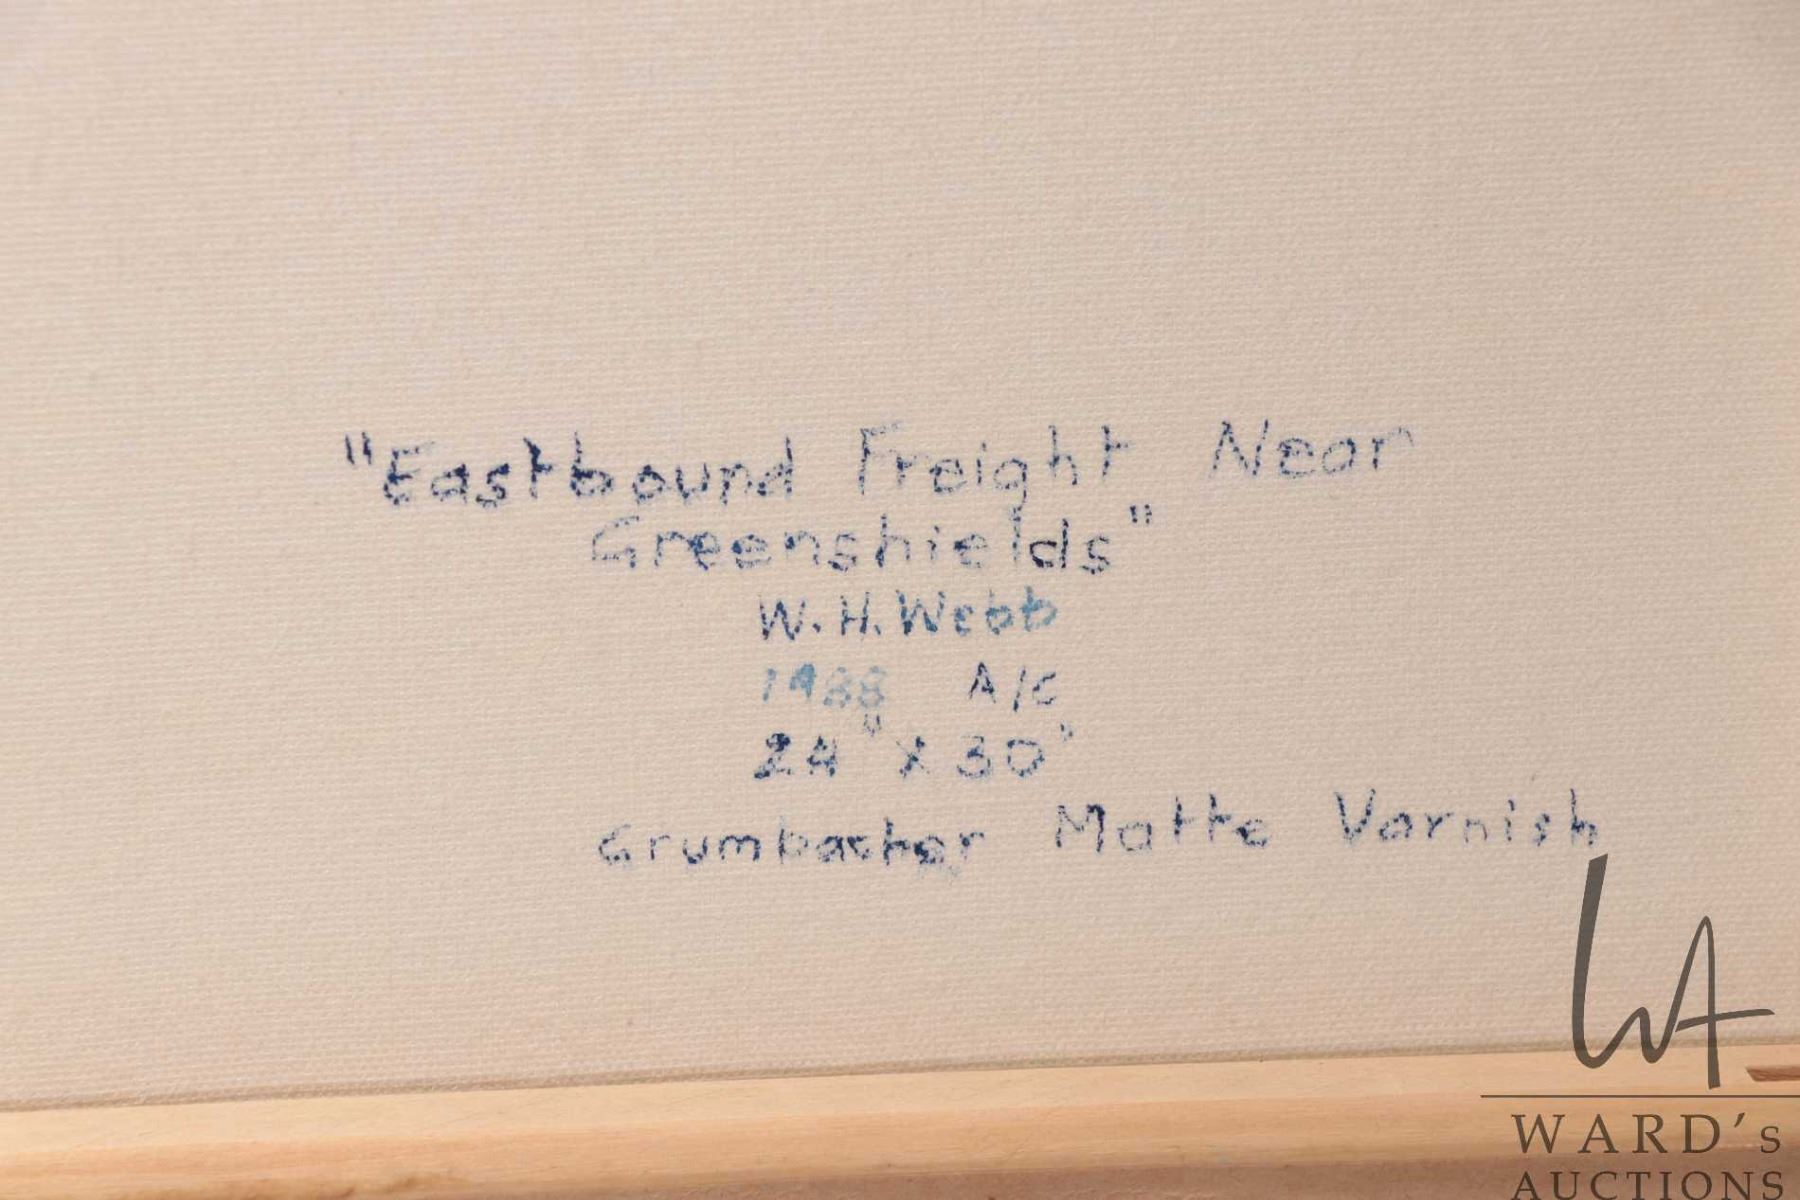 "Eastbound Freight Near
Greenshields"
W.H.Webb
1988 A/C
24" x 30"
Grumbacher Matte Varnish
WA
WARD's
AUCTIONS